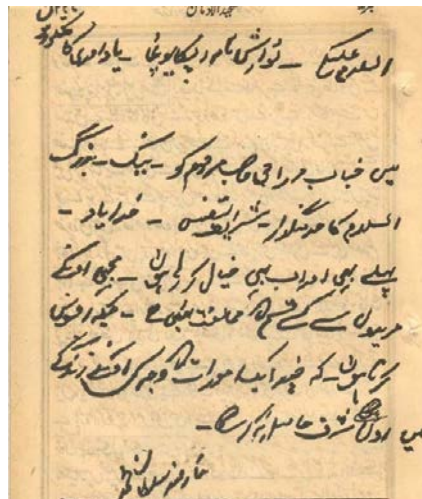 السلام علیکم ۔ نوازشنامہ آپکا پہونچا ۔ یاد آوری کا
میں جناب مرزا صاحب مرحوم کو ۔ نیک ۔ بزرگ
السلام کا خدمتگذار ۔ شریف النفس ۔ خدا یاد ۔
پہلے بھی اور اب بھی خیال کر رہا ہوں ۔ مجھے اونکے
مریدوں سے کسی قسم کی مخالفت نہیں ہے ۔ بلکہ افسوس
کرتا ہوں ۔ کہ چند ایک کی وجہ اونکی زندگی
میں اون سے شرف حاصل نہ کر سکا ۔